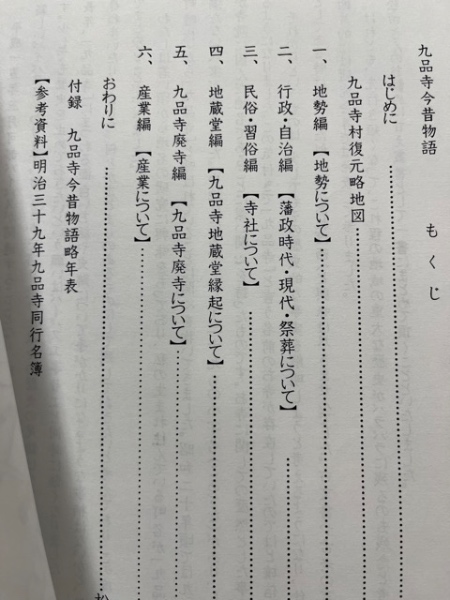 九品寺今昔物語　もくじ
はじめに
九品寺村復元略地図
一、地勢編【地勢について】
二、行政・自治編【藩政時代・現代・祭葬について】
三、民俗・習俗編【寺社について】
四、地蔵堂編【九品寺地蔵堂縁起について】
五、九品寺廃寺編【九品寺廃寺について】
六、産業編【産業について】
おわりに
付録　九品寺今昔物語略年表
【参考資料】明治三十九年九品寺同行名簿